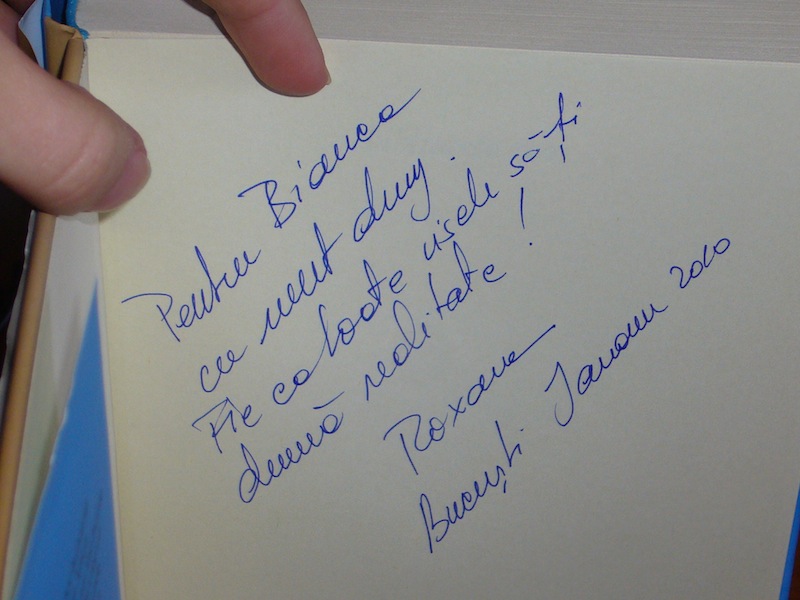 Pentru Bianca
cu mult drag.
Fie ca toate visele să-ți
devină realitate!
Roxana
București Ianuarie 2010